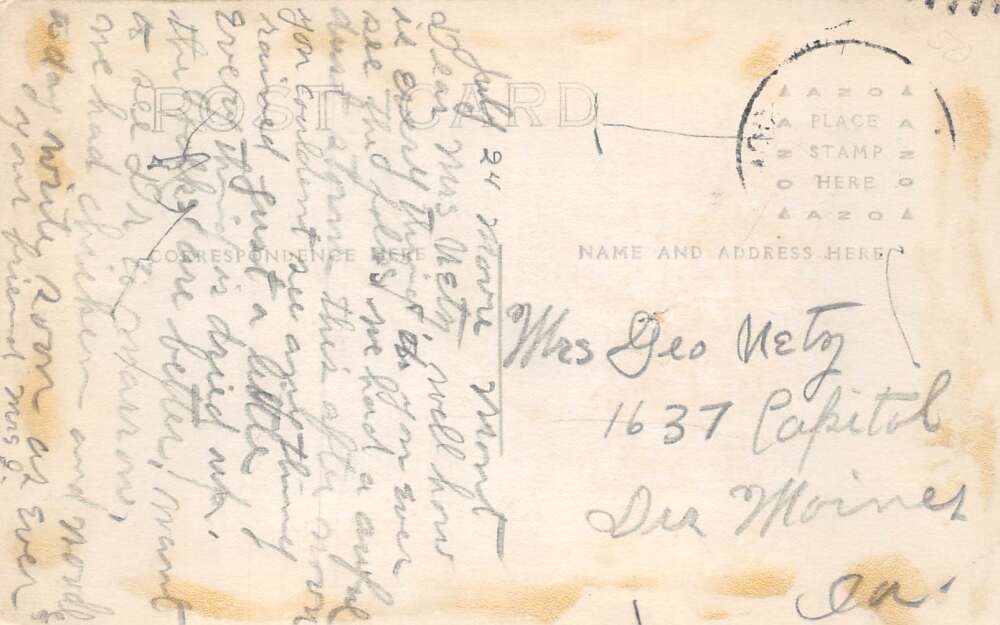 POST CARD
CORRESPONDENCE HERE
NAME AND ADDRESS HERE
AZO
PLACE
STAMP
HERE
AZO
July 24 Moore Mont
Dear Mrs Netz well how
is every thing do you ever
see the folks we had a awful
dust storm this after noon
you couldent see anything
rained Just a little
Every thing is dried up.
the folks are better, want
to see Dr to marrow,
we had chicken and noodles
a day write Soon as Ever
your friend Mrs G.
Mrs Geo Netz
1637 Capitol
Des Moines
Ia.